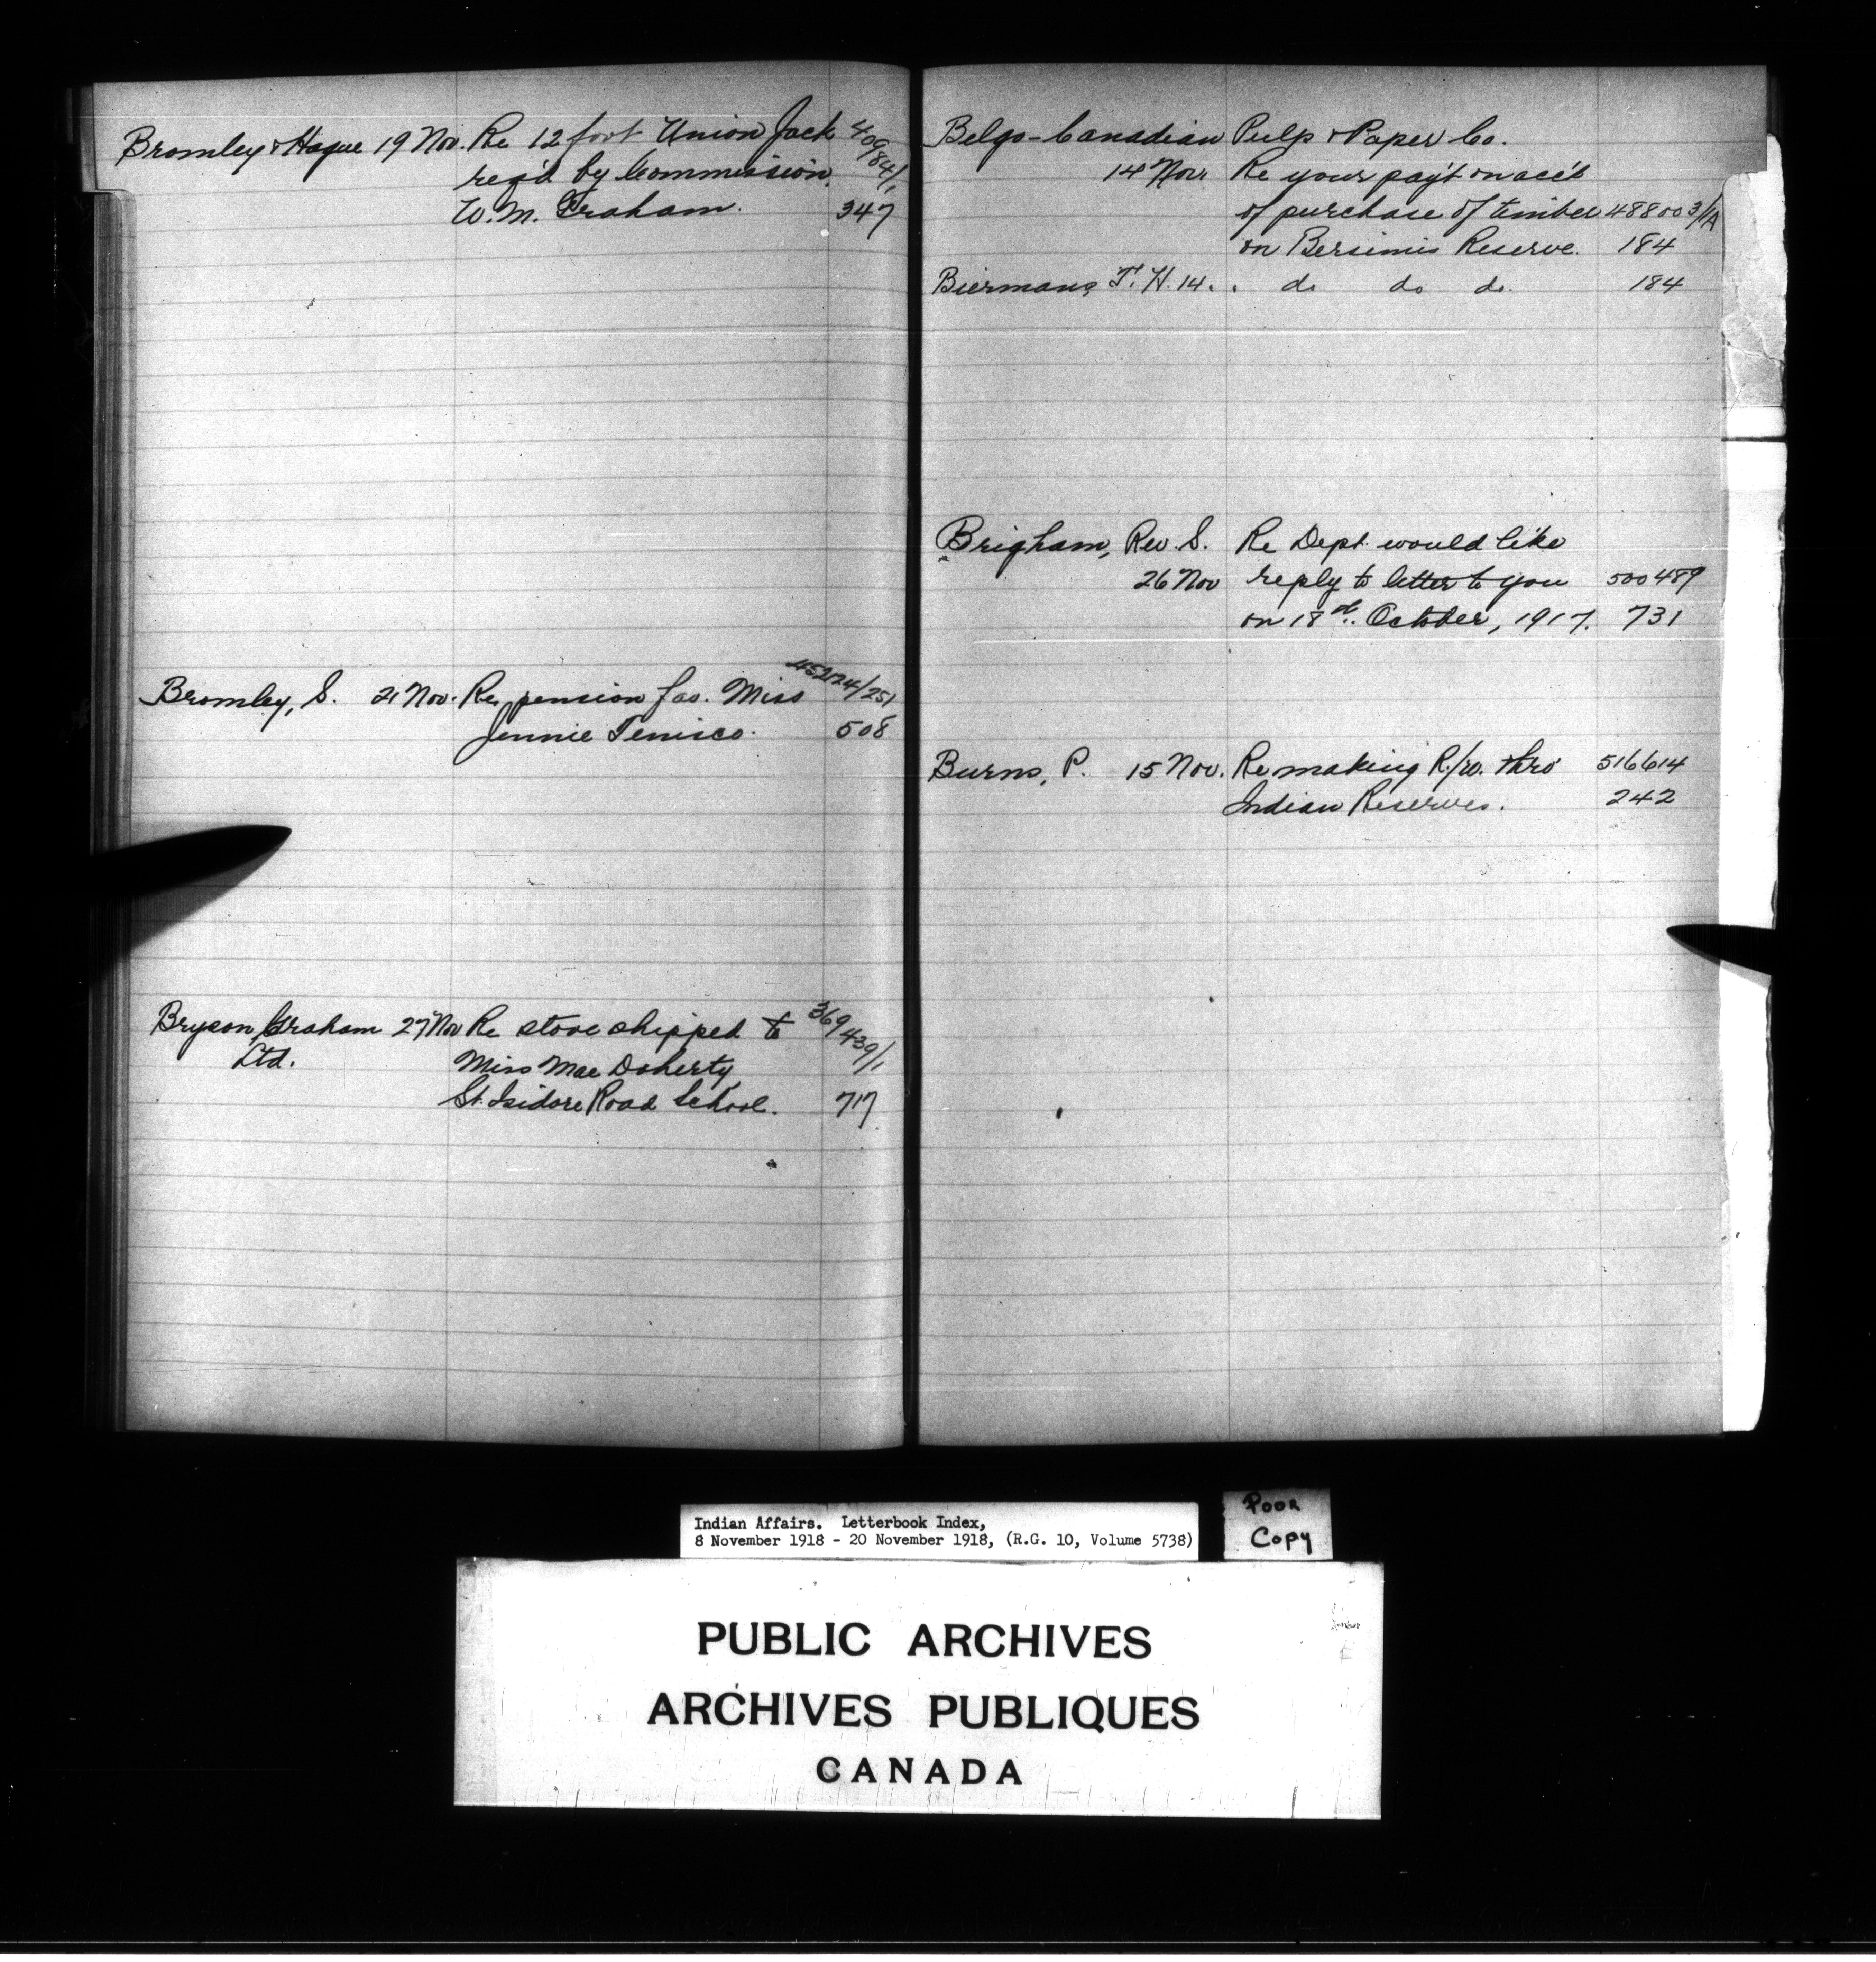 Bromley & Hague 19 Nov. Re 12 foot Union Jack 40984/1
req'd by Commission.
W. M. Graham. 347
Bromley, S. 21 Nov. Re pension Jas. Miss 452124/251
Jennie Tenisco. 508
Bryson, Graham 27 Nov Re stove shipped to 369439/1
Ltd. Miss Mae Doherty
St. Isidore Road School. 717
Belgo-Canadian Pulp & Paper Co.
14 Nov. Re your pay't on acc't
of purchase of timber 488003/1A
on Bersimis Reserve. 184
Biermans, T. H. 14. . do do do. 184
Brigham, Rev. S. Re Dept. would like
26 Nov reply to letter to you 500489
on 18th. October, 1917. 731
Burns, P. 15 Nov. Re making R/w. thro' 516614
Indian Reserves. 242
Indian Affairs. Letterbook Index,
8 November 1918 - 20 November 1918, (R.G. 10, Volume 5738)
POOR
COPY
PUBLIC ARCHIVES
ARCHIVES PUBLIQUES
CANADA